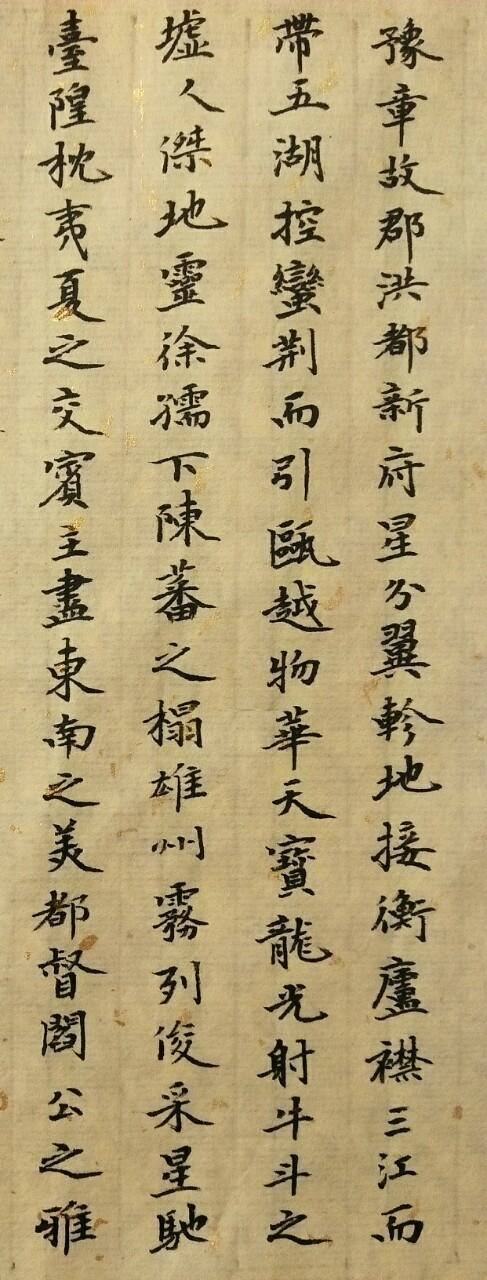 豫章故郡洪都新府星分翼軫地接衡廬襟三江而
帶五湖控蠻荆而引甌越物華天寶龍光射牛斗之
墟人傑地靈徐孺下陳蕃之榻雄州霧列俊采星馳
臺隍枕夷夏之交賓主盡東南之美都督閻公之雅